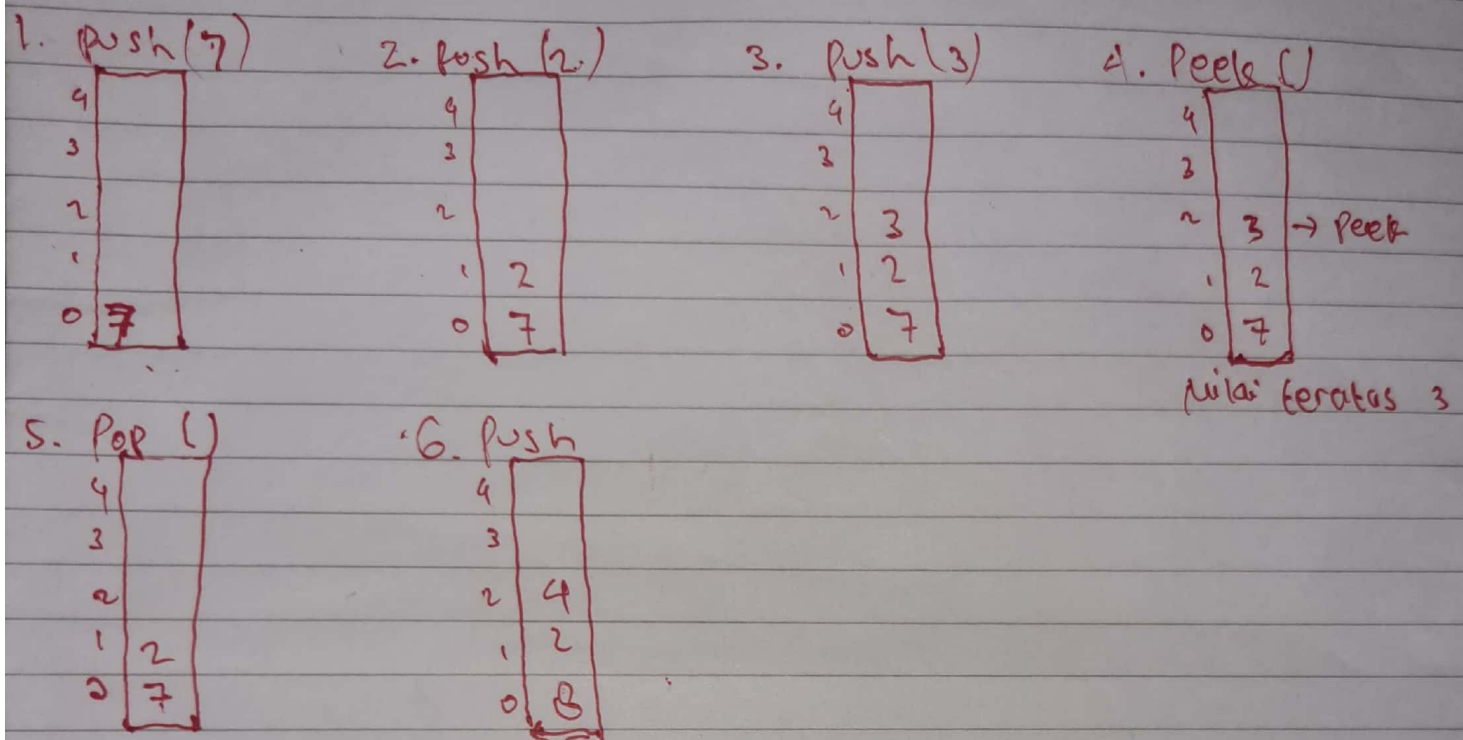 1. push(7)
4
3
2
1
0 7
2. Posh (2)
4
3
2
1 2
0 7
3. Push (3)
4
3
2 3
1 2
0 7
4. Peek ()
4
3
2 3 → Peek
1 2
0 7
Nilai teratas 3
5. Pop ()
4
3
2
1 2
0 7
6. Push
4
3
2 4
1 2
0 8